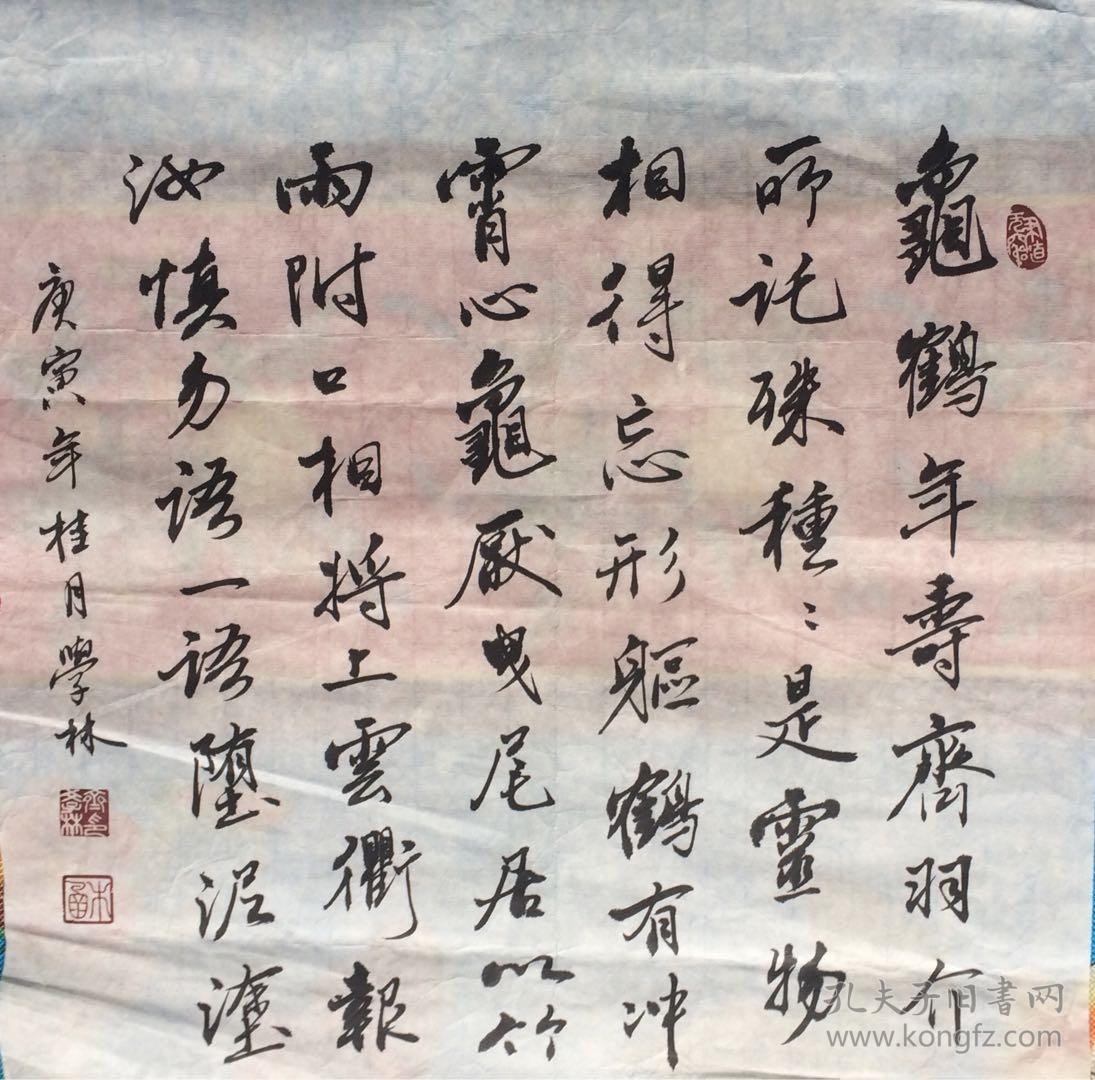 龜鶴年壽齊羽介
所託殊種〻是靈物
相得忘形軀鶴有冲
霄心龜厭曳尾居以竹
兩附口相將上雲衢報
汝慎勿語一語墮泥塗
庚寅年桂月學林
孔夫子旧書网
www.kongfz.com